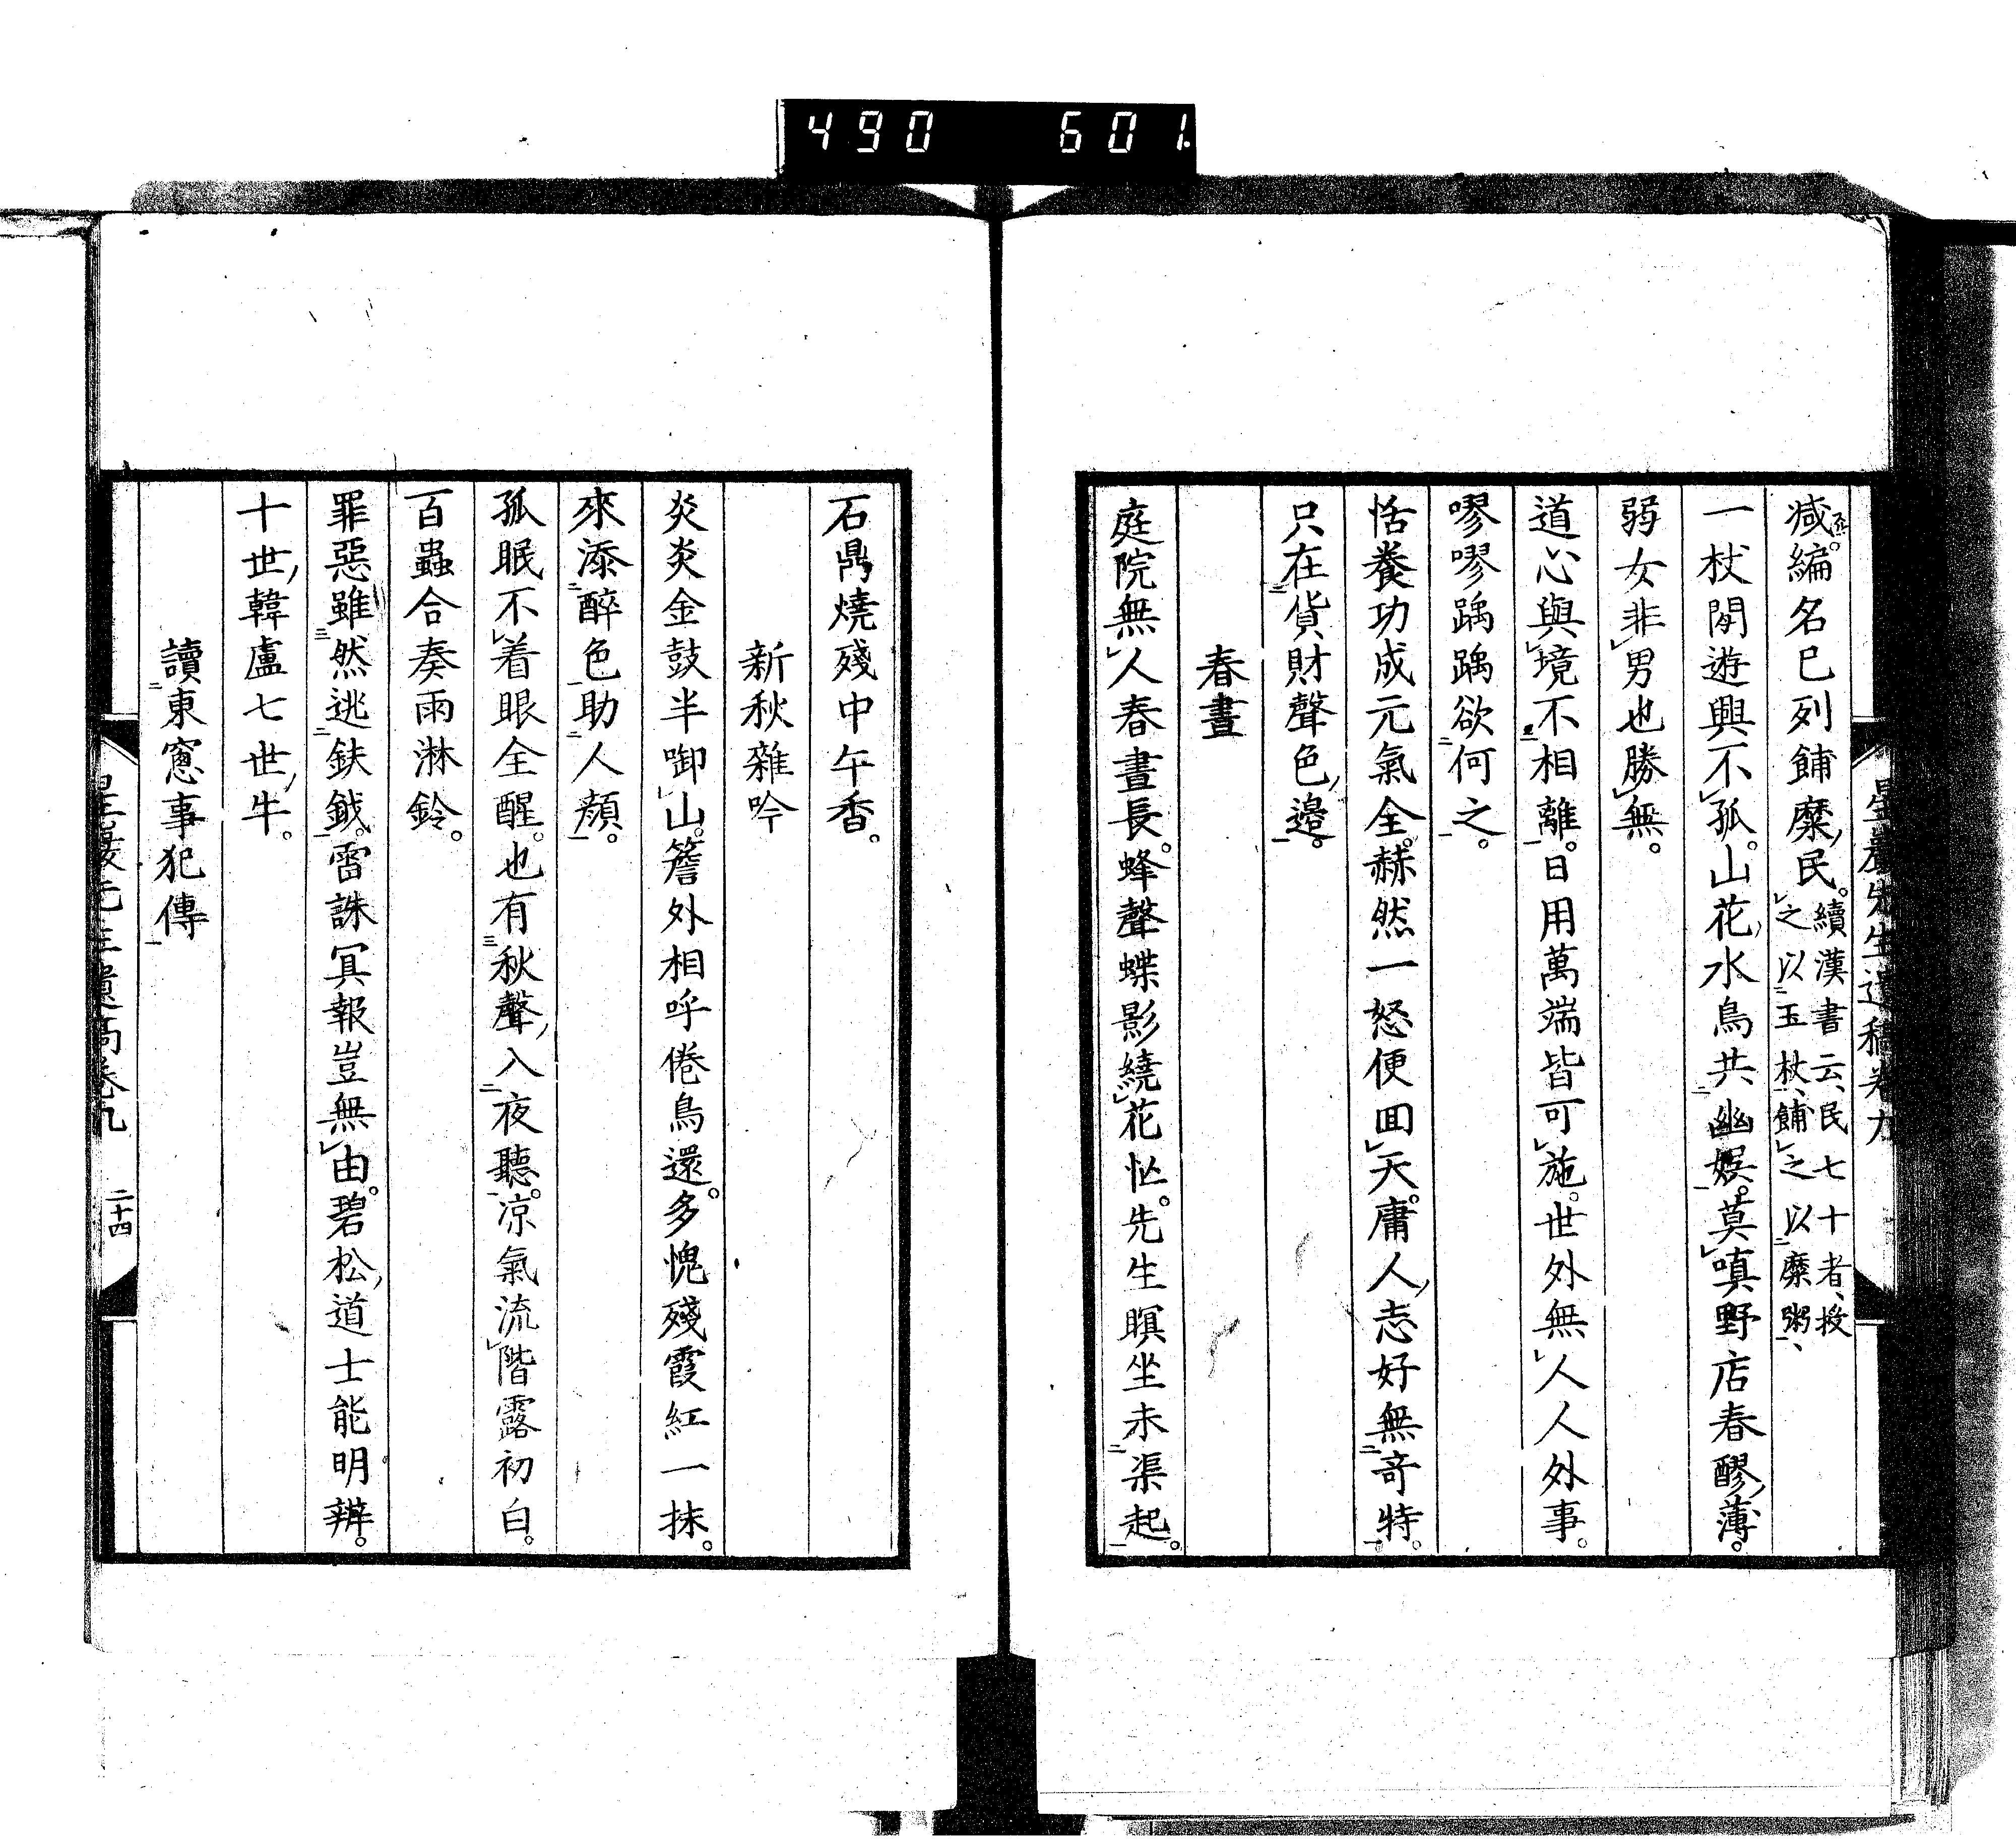 490 601
星巖先生遺稿卷九
減。編名已列餔糜民。續漢書云、民七十者、授
之以玉杖、餔之以糜粥、
一杖閒遊興不孤。山花水鳥共幽娯。莫嗔野店春醪薄。
弱女非男也勝無。
道心與境不相離。日用萬端皆可施。世外無人人外事。
嘐嘐踽踽欲何之。
恬養功成元氣全。赫然一怒便回天。庸人志好無奇特。
只在貨財聲色邉。
春晝
庭院無人春晝長。蜂聲蝶影繞花忙。先生瞑坐未渠起。
石鼎燒殘中午香。
新秋雜吟
炎炎金鼓半啣山。簷外相呼倦鳥還。多愧殘霞紅一抹。
來添醉色助人顏。
孤眠不着眼全醒。也有秋聲入夜聽。凉氣流階露初白。
百蟲合奏雨淋鈴。
罪惡雖然逃鈇鉞。雷誅冥報豈無由。碧松道士能明辨。
十世韓盧七世牛。
讀東窻事犯傳
星巖先生遺稿卷九 二十四